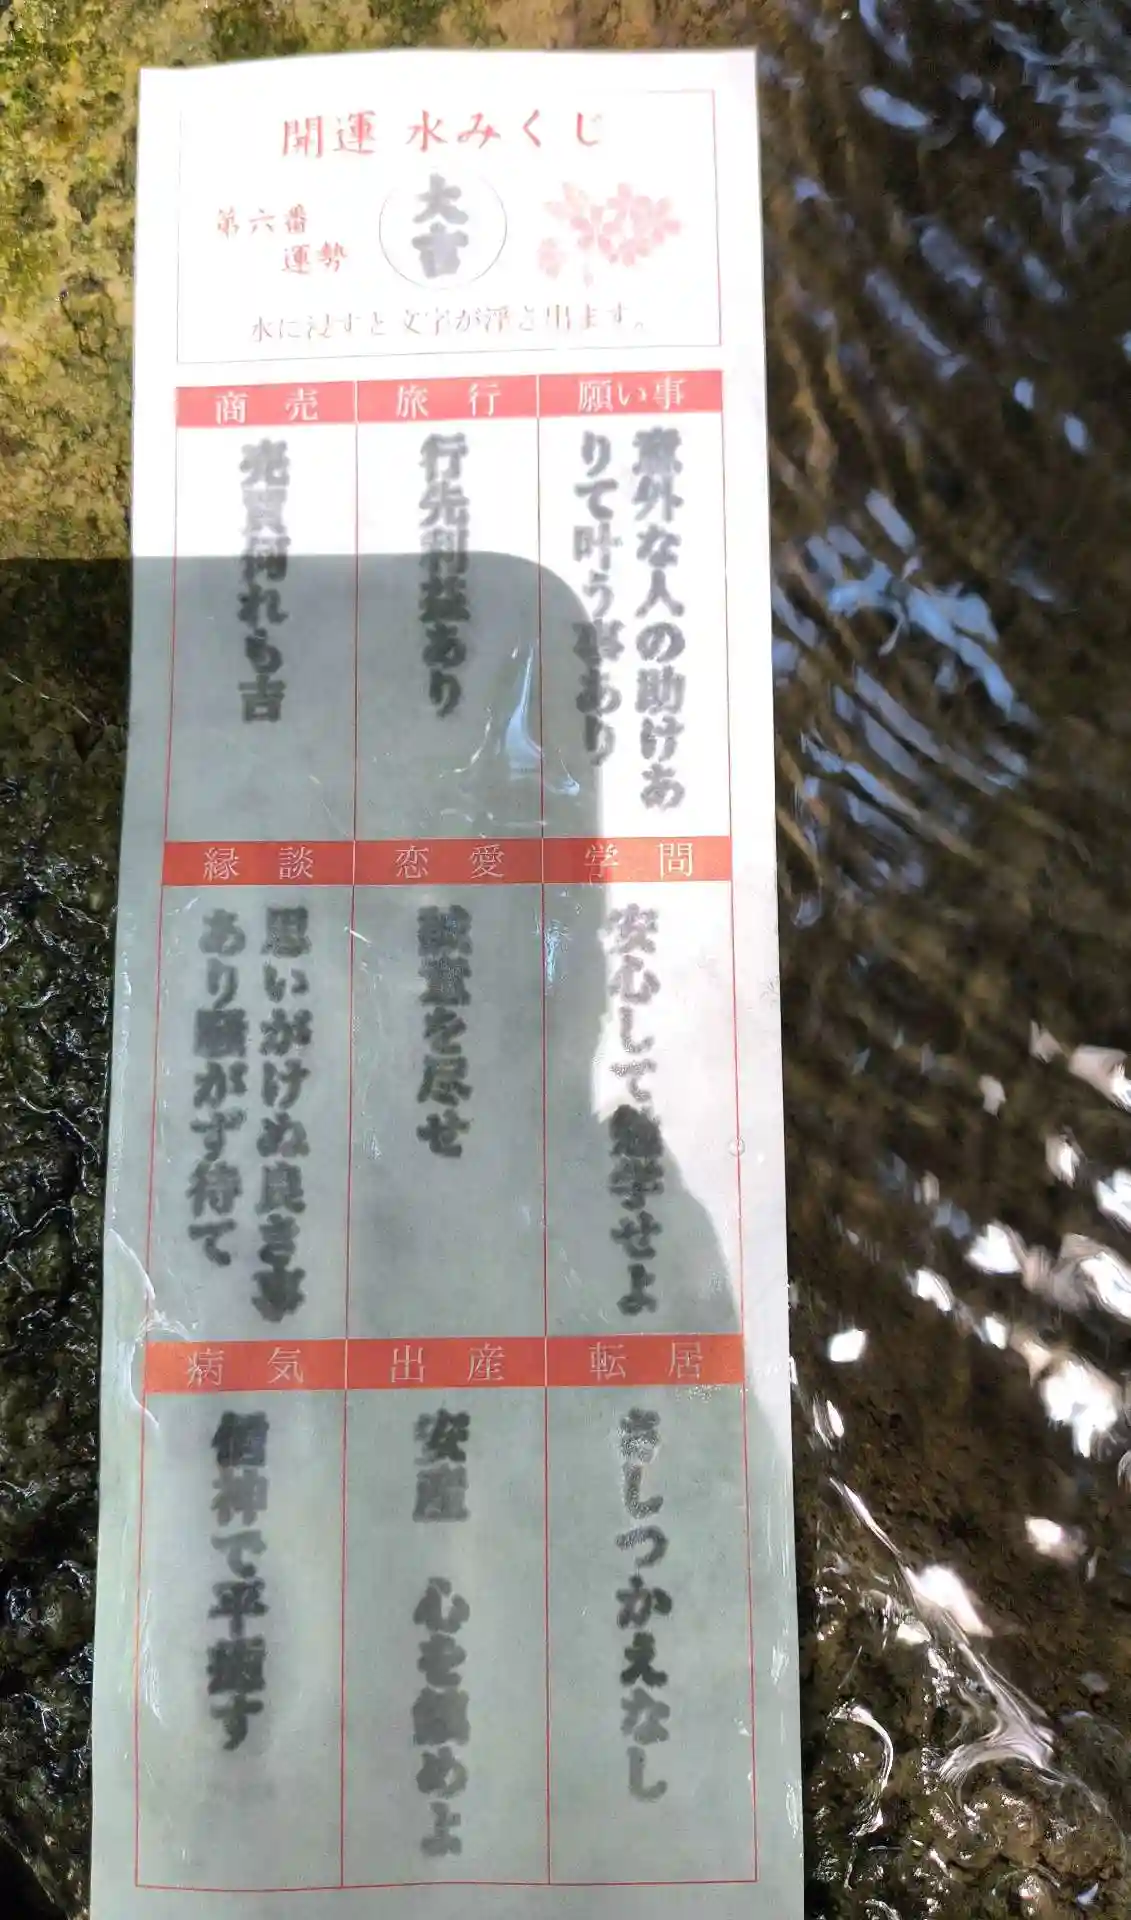 開運 水みくじ
第六番
運勢
大吉
水に浸すと文字が浮き出ます。
願い事
意外な人の助けあ
りて叶う事あり
旅行
行先利益あり
商売
売買何れも吉
学問
安心して勉学せよ
恋愛
誠意を尽せ
縁談
思いがけぬ良き事
あり騒がず待て
転居
さしつかえなし
出産
安産 心を鎮めよ
病気
信神で平癒す